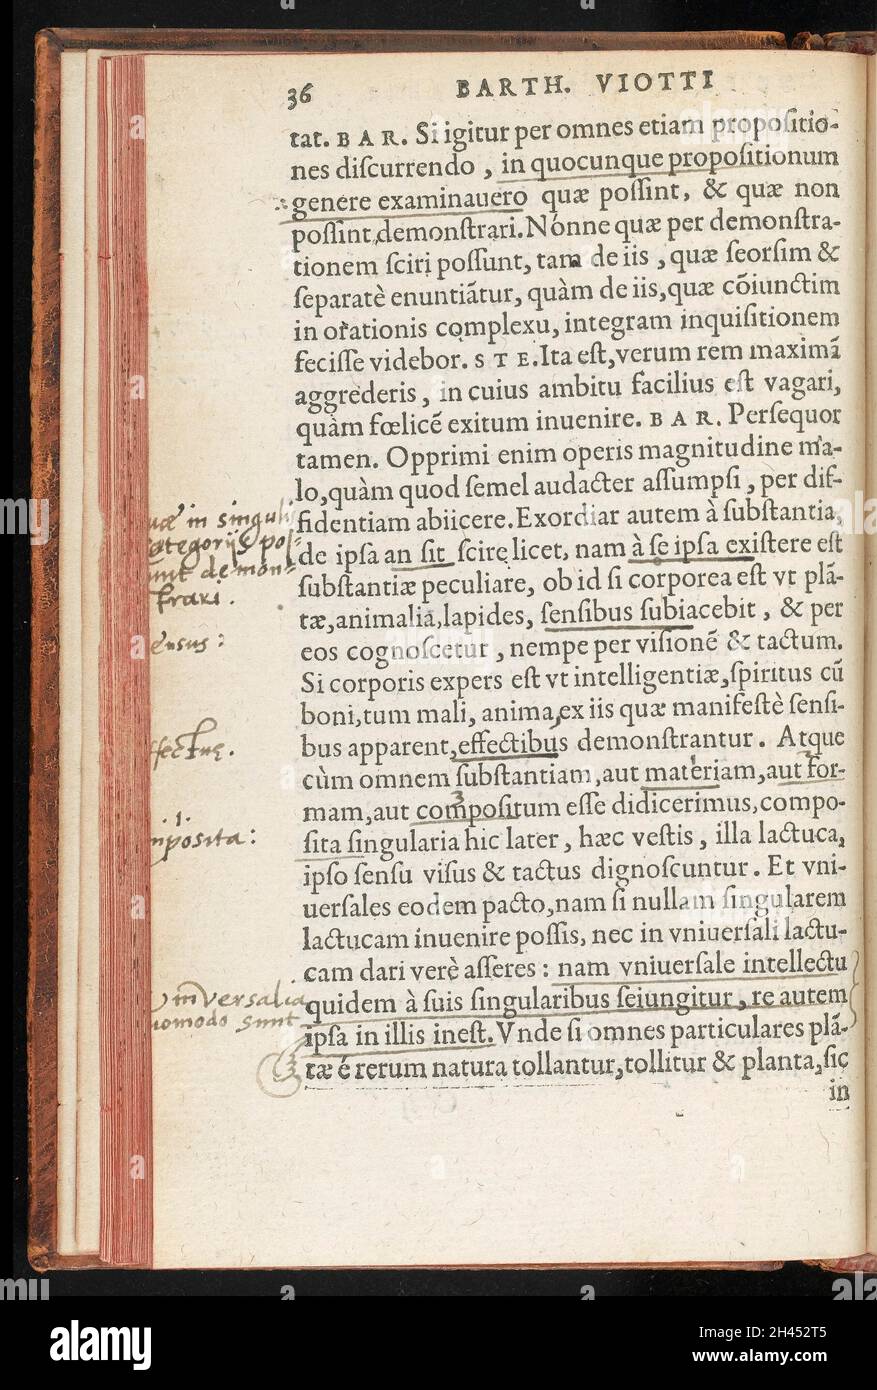 36 BARTH. VIOTTI
tat. BAR. Si igitur per omnes etiam propoſitio-
nes diſcurrendo, in quocunque propoſitionum
genere examinauero quæ poſſint, & quæ non
poſſint demonſtrari. Nónne quæ per demonſtra-
tionem ſciri poſſunt, tam de iis, quæ ſeorſim &
ſeparatè enuntiãtur, quàm de iis, quæ cõiunctim
in orationis complexu, integram inquiſitionem
feciſſe videbor. STE. Ita eſt, verum rem maximã
aggrederis, in cuius ambitu facilius eſt vagari,
quàm fœlicẽ exitum inuenire. BAR. Perſequor
tamen. Opprimi enim operis magnitudine ma-
lo, quàm quod ſemel audacter aſſumpſi, per dif-
fidentiam abiicere. Exordiar autem à ſubſtantia,
de ipſa an ſit ſcire licet, nam à ſe ipſa exiſtere eſt
ſubſtantiæ peculiare, ob id ſi corporea eſt vt plã-
tæ, animalia, lapides, ſenſibus ſubiacebit, & per
eos cognoſcetur, nempe per viſionẽ & tactum.
Si corporis expers eſt vt intelligentiæ, ſpiritus cũ
boni, tum mali, anima, ex iis quæ manifeſtè ſenſi-
bus apparent, effectibus demonſtrantur. Atque
cùm omnem ſubſtantiam, aut materiam, aut for-
mam, aut compoſitum eſſe didicerimus, compo-
ſita ſingularia hic later, hæc veſtis, illa lactuca,
ipſo ſenſu viſus & tactus dignoſcuntur. Et vni-
uerſales eodem pacto, nam ſi nullam ſingularem
lactucam inuenire poſſis, nec in vniuerſali lactu-
cam dari verè aſſeres: nam vniuerſale intellectu
quidem à ſuis ſingularibus ſeiungitur, re autem
ipſa in illis ineſt. Vnde ſi omnes particulares plã-
tæ é rerum natura tollantur, tollitur & planta, ſic
in
in singulis
categorijs poſ-
demon-
trari.
alamy
Image ID: 2H452T5
www.alamy.com